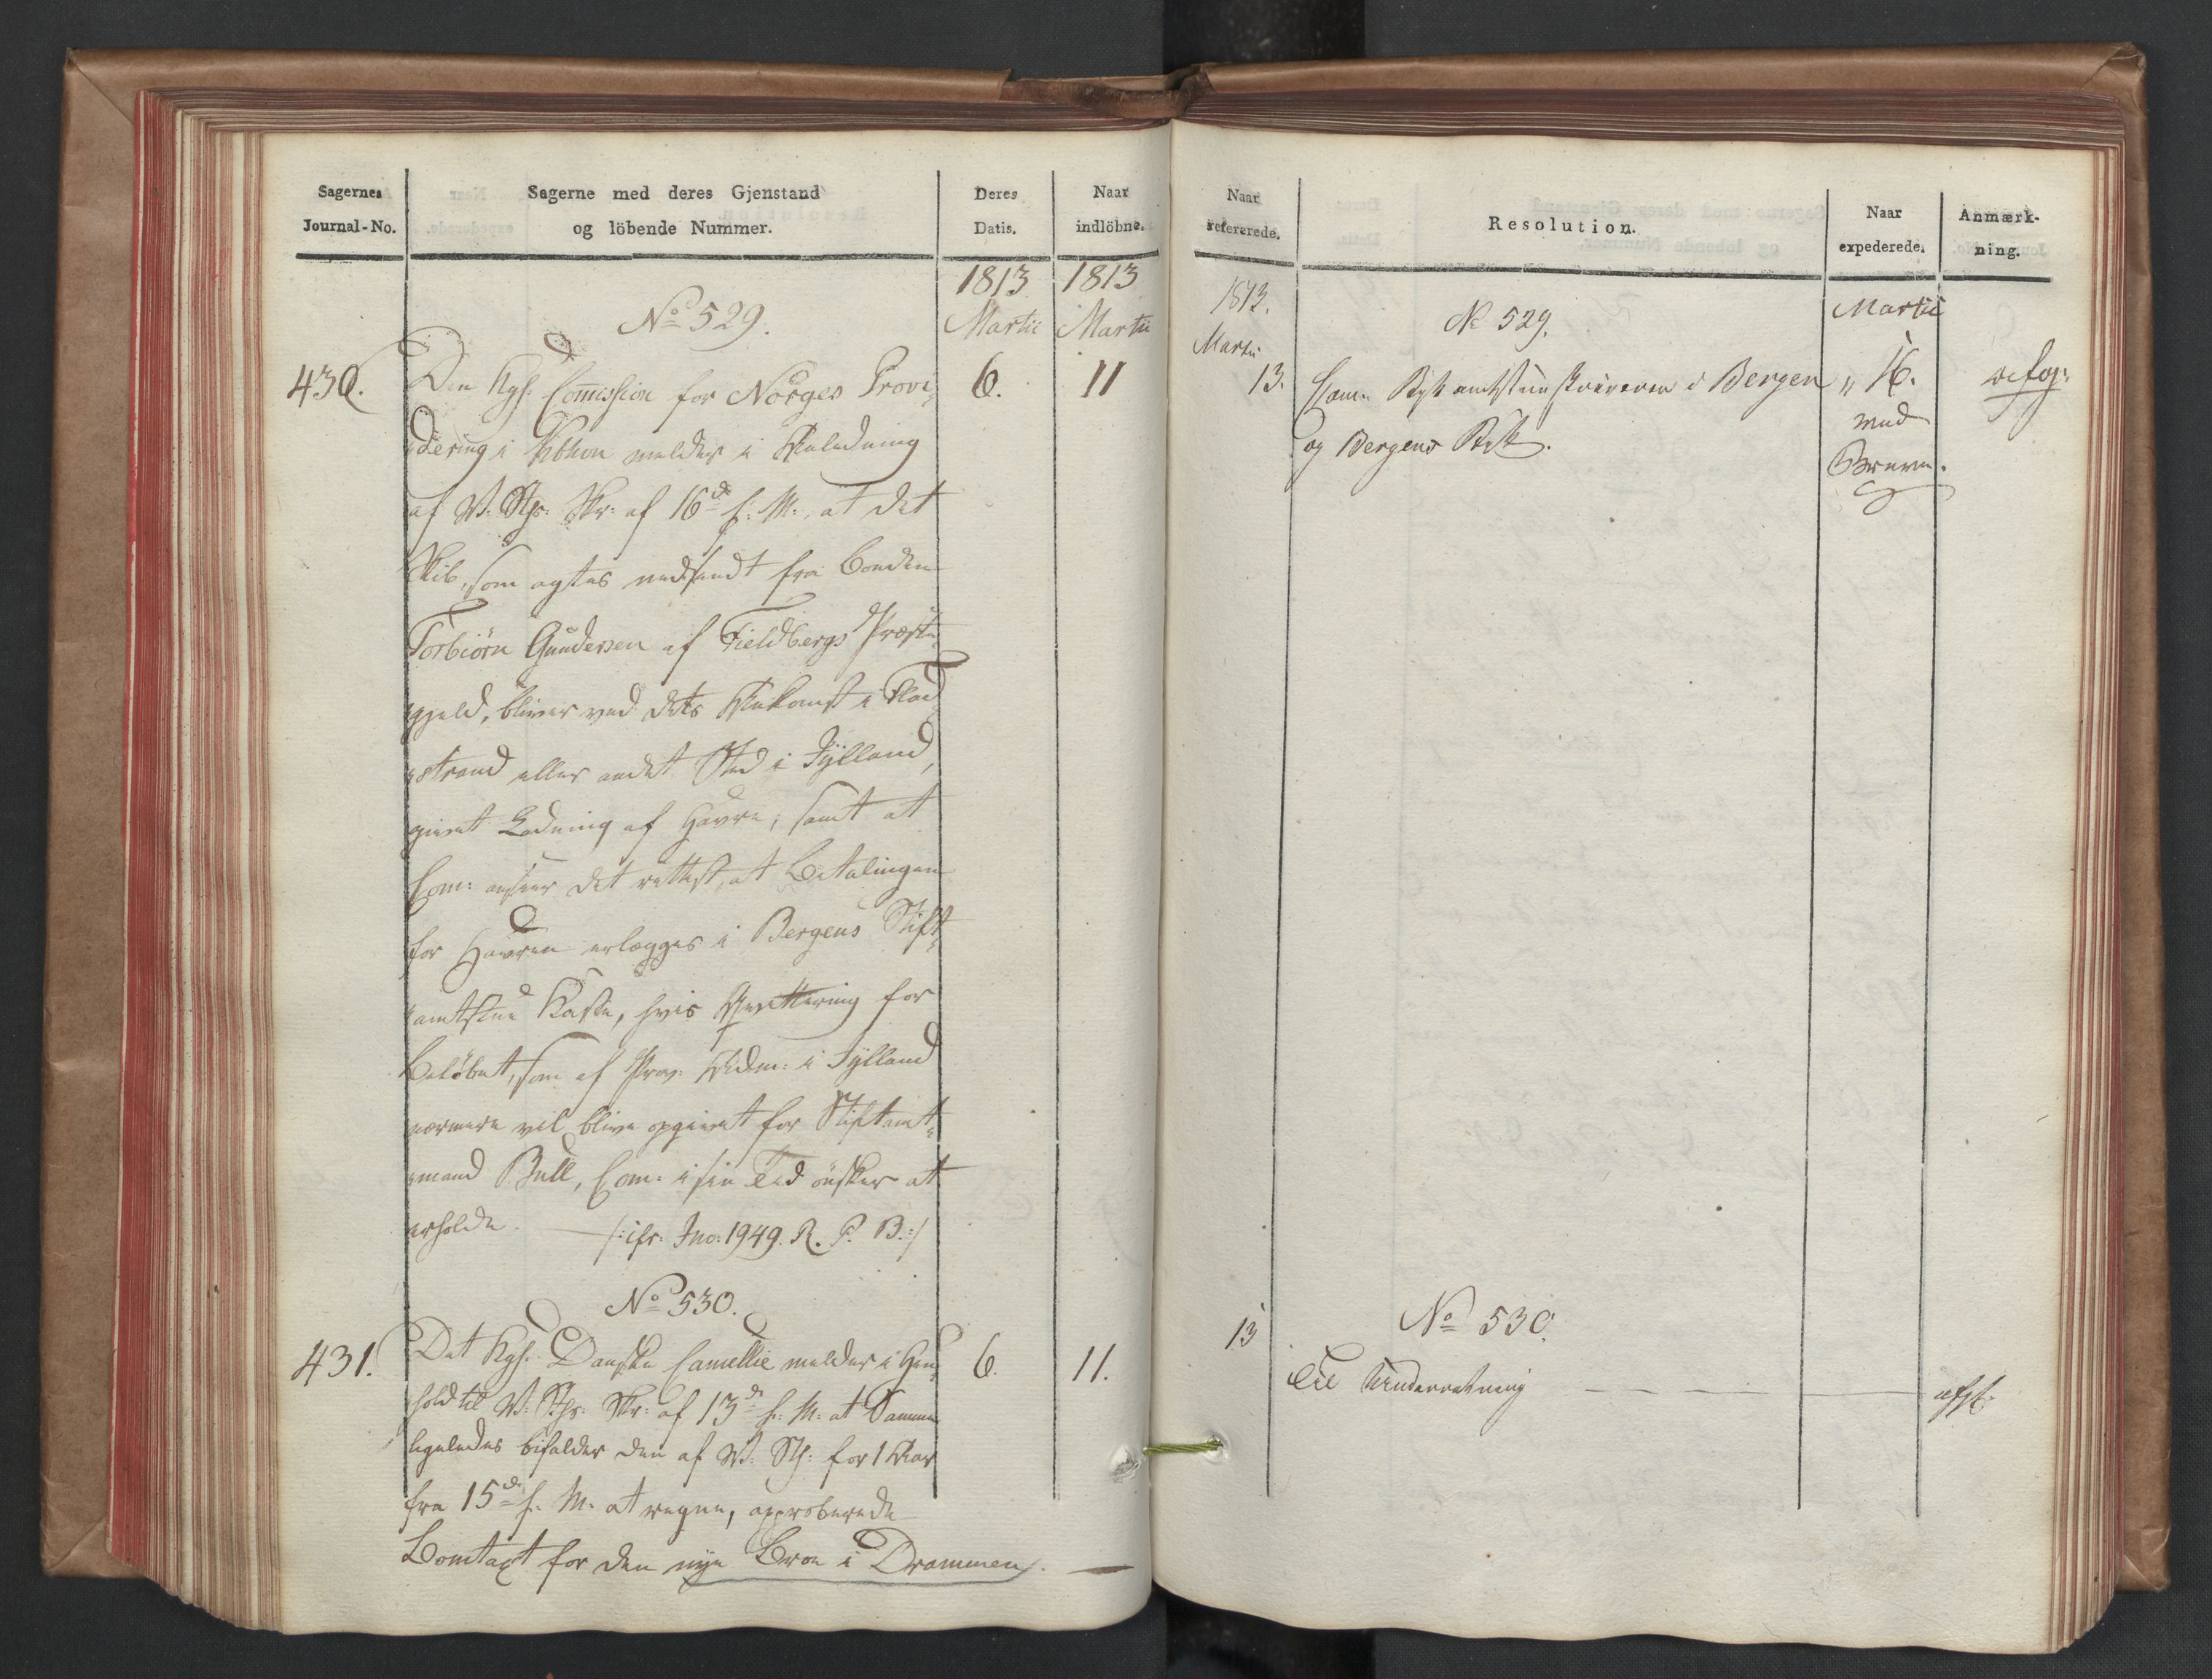 Sagernes
Journal-No.
Sagerne med deres Gjenstand
og löbende Nummer.
Deres
Datis.
Naar
indlöbne.
1813
Martii
1813
Martii
No 529.
430.
6.
11
Den Kgl. Com̄ission for Norges Provi„
„dering i Kbhvn melder i Anledning
af V. Sthr. Skr: af 16de f: M:, at det
Skib, som agtes nedsendt fra Bonden
Torbiörn Gundersen af Fieldbergs Præste„
„gjeld, bliver ved dets Ankomst i Flad„
„strand eller andet Sted i Jylland,
givet Ladning af Havre, samt at
Com: anseer det rettest, at Betalingen
for Havren erlægges i Bergens Stift„
„amtstue Kasse, hvis Qvittering for
Belöbet, som af Prov: Adm: i Jylland
nærmere vil blive opgivet for Stiftamt„
„mand Bull, Com: i sin Tid önsker at
erholde. — /: cfr. Jno: 1949. R. P. B :/
No 530.
431.
6.
11.
Det Kgl. Danske Cancellie melder i Hen„
hold til V: Sthr: Skr: af 13de f: M: at Samme
ligeledes bifalder den af V: Sth: for 1 Aar
fra 15de f. M. at regne, approberede
Bomtaxt for den nye Broe i Drammen. —
Naar
refererede.
Resolution.
Naar
expederede.
Anmærk-
ning.
1813.
Martii
13.
No 529.
Com. Stiftamtstueskriveren i Bergen
og Bergens Stift.
Martii
„ 16.
med
Breve.
13
No 530.
Til Underretning — — —